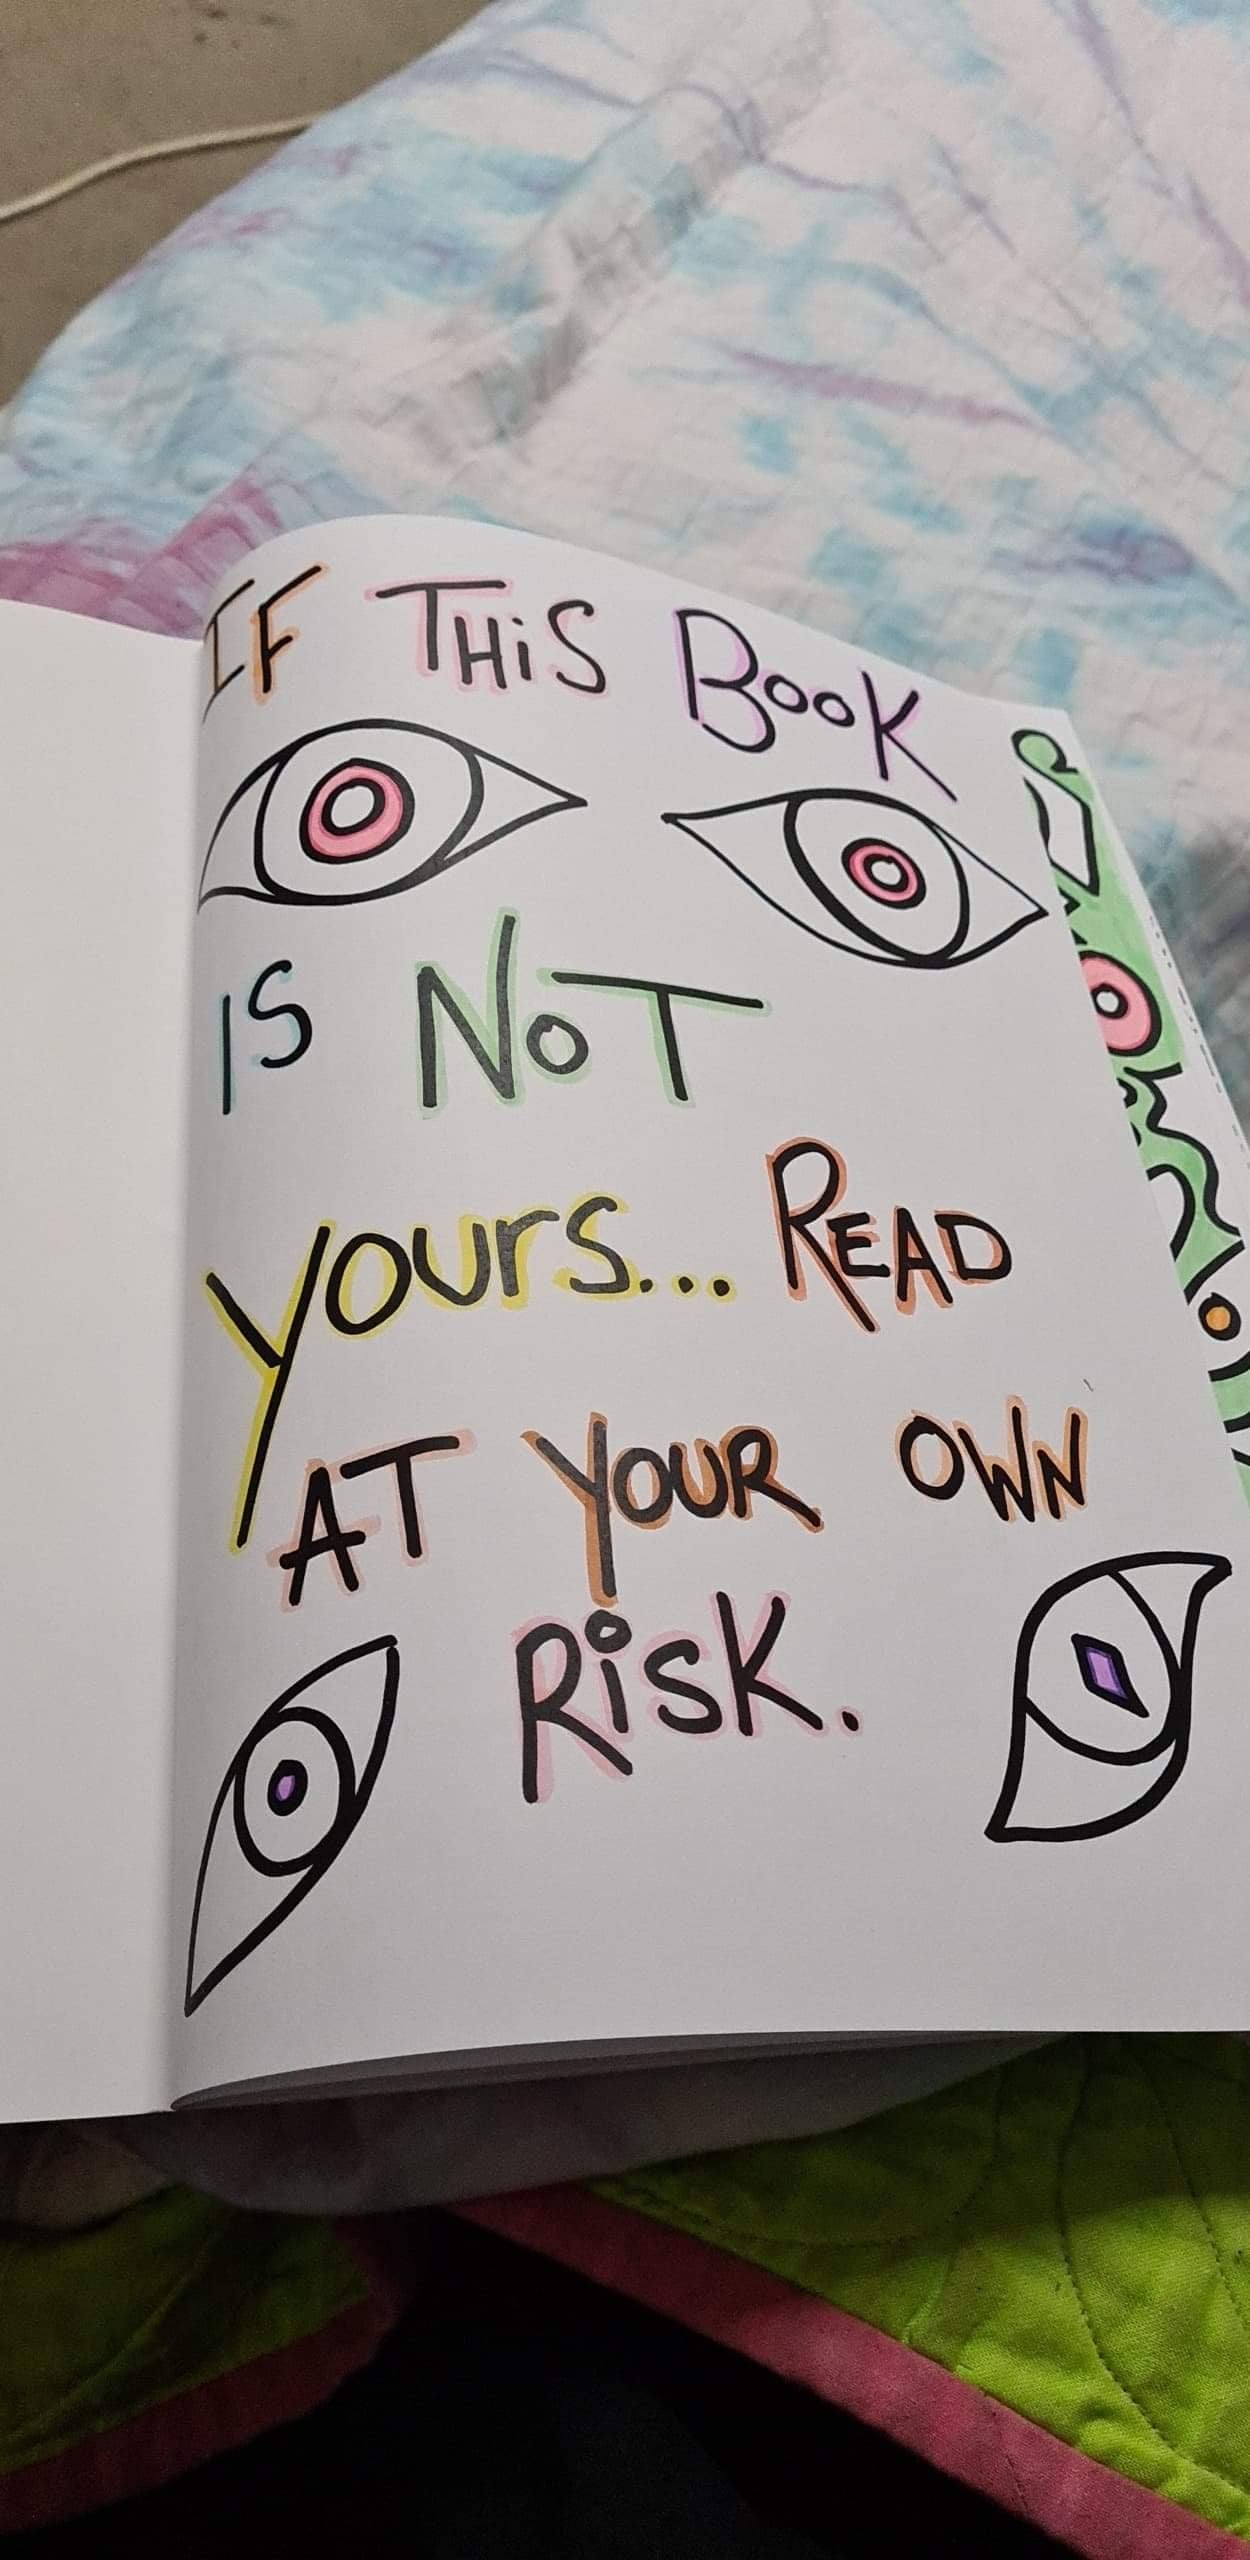 IF THiS BooK
IS NoT
yours... READ
AT YOUR OWN
RiSK.